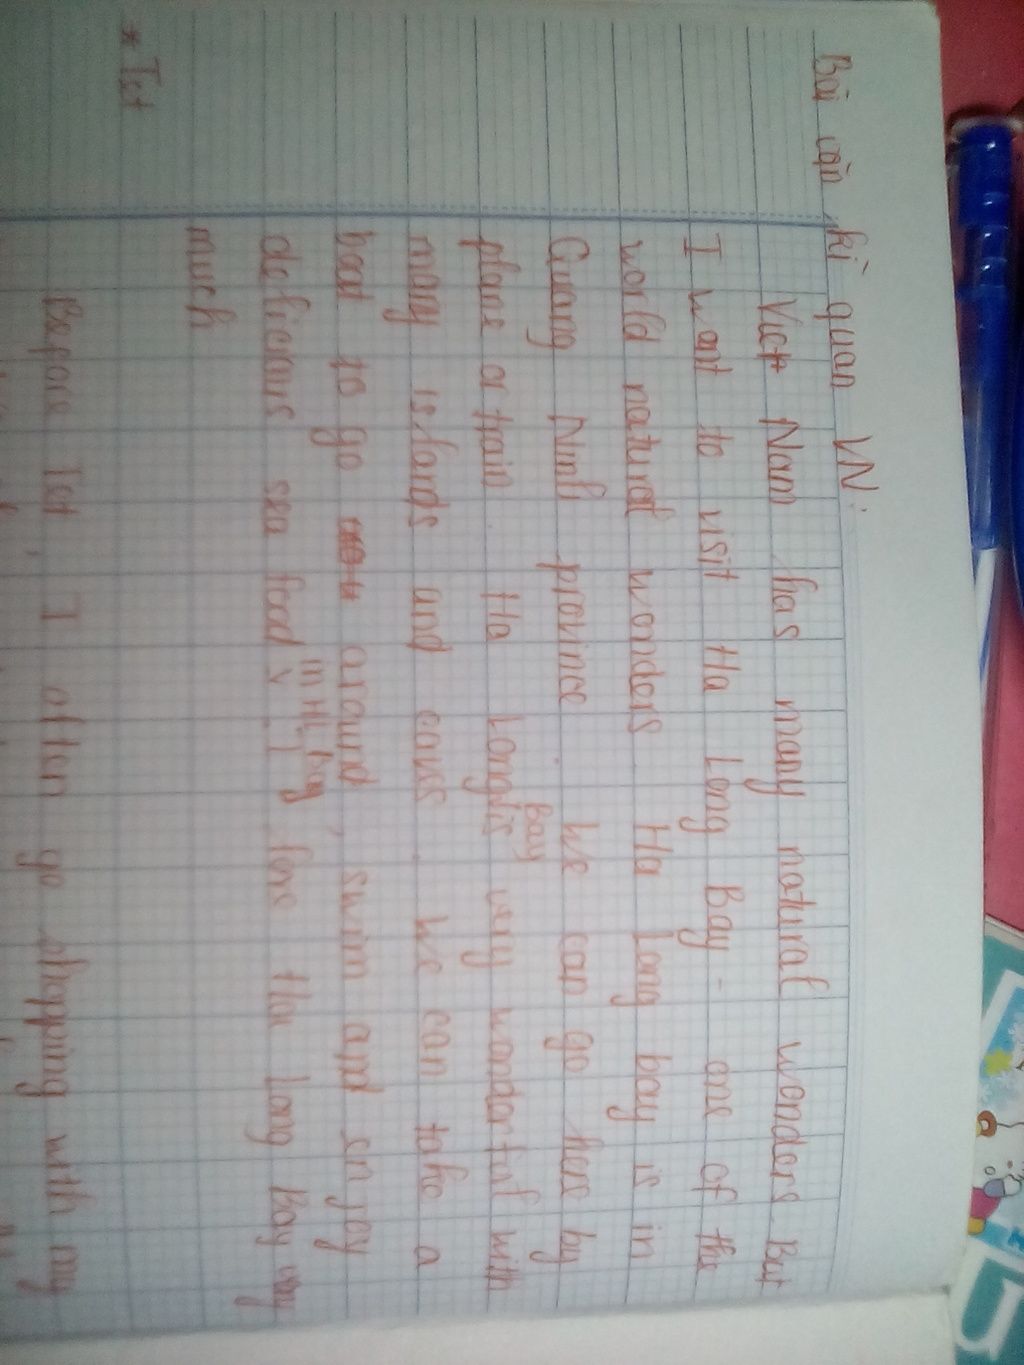 Bài văn kì quan VN:
Việt Nam has many natural wonders. But
I want to visit Ha Long Bay - one of the
world natural wonders. Ha Long bay is in
Quang Ninh province. We can go here by
plane or train. Ha Long Bay is very wonderful with
many islands and caves. We can take a
boat to go around, swim and enjoy
delicious sea food in HL bay. I love Ha Long Bay very
much
* Tet
Before Tet, I often go shopping with my